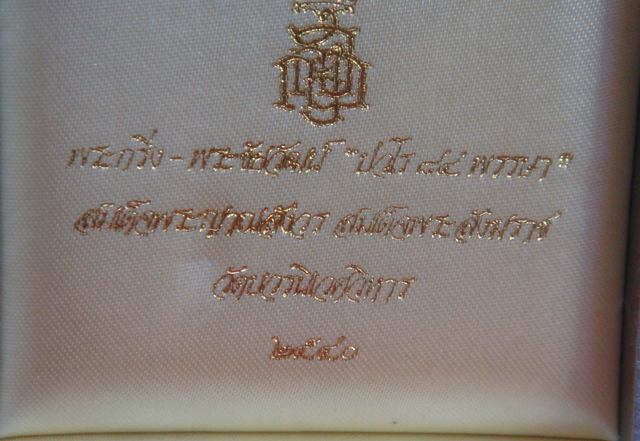 พระกริ่ง - พระชัยวัฒน์ "ปวโร ๘๔ พรรษา"
สมเด็จพระญาณสังวร สมเด็จพระสังฆราช
วัดบวรนิเวศวิหาร
๒๕๔๐